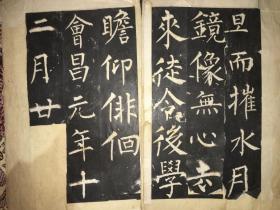 旦而摧水月
鏡像無心去
來徒令後學
瞻仰俳佪
會昌元年十
二月廿